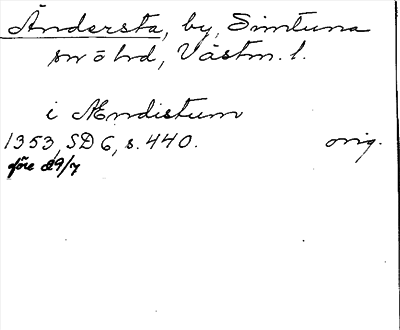 Ändersta, by, Simtuna
sn o hd, Västm. l.
i Ændistum
1353, SD 6, s. 440. orig.
före 29/7